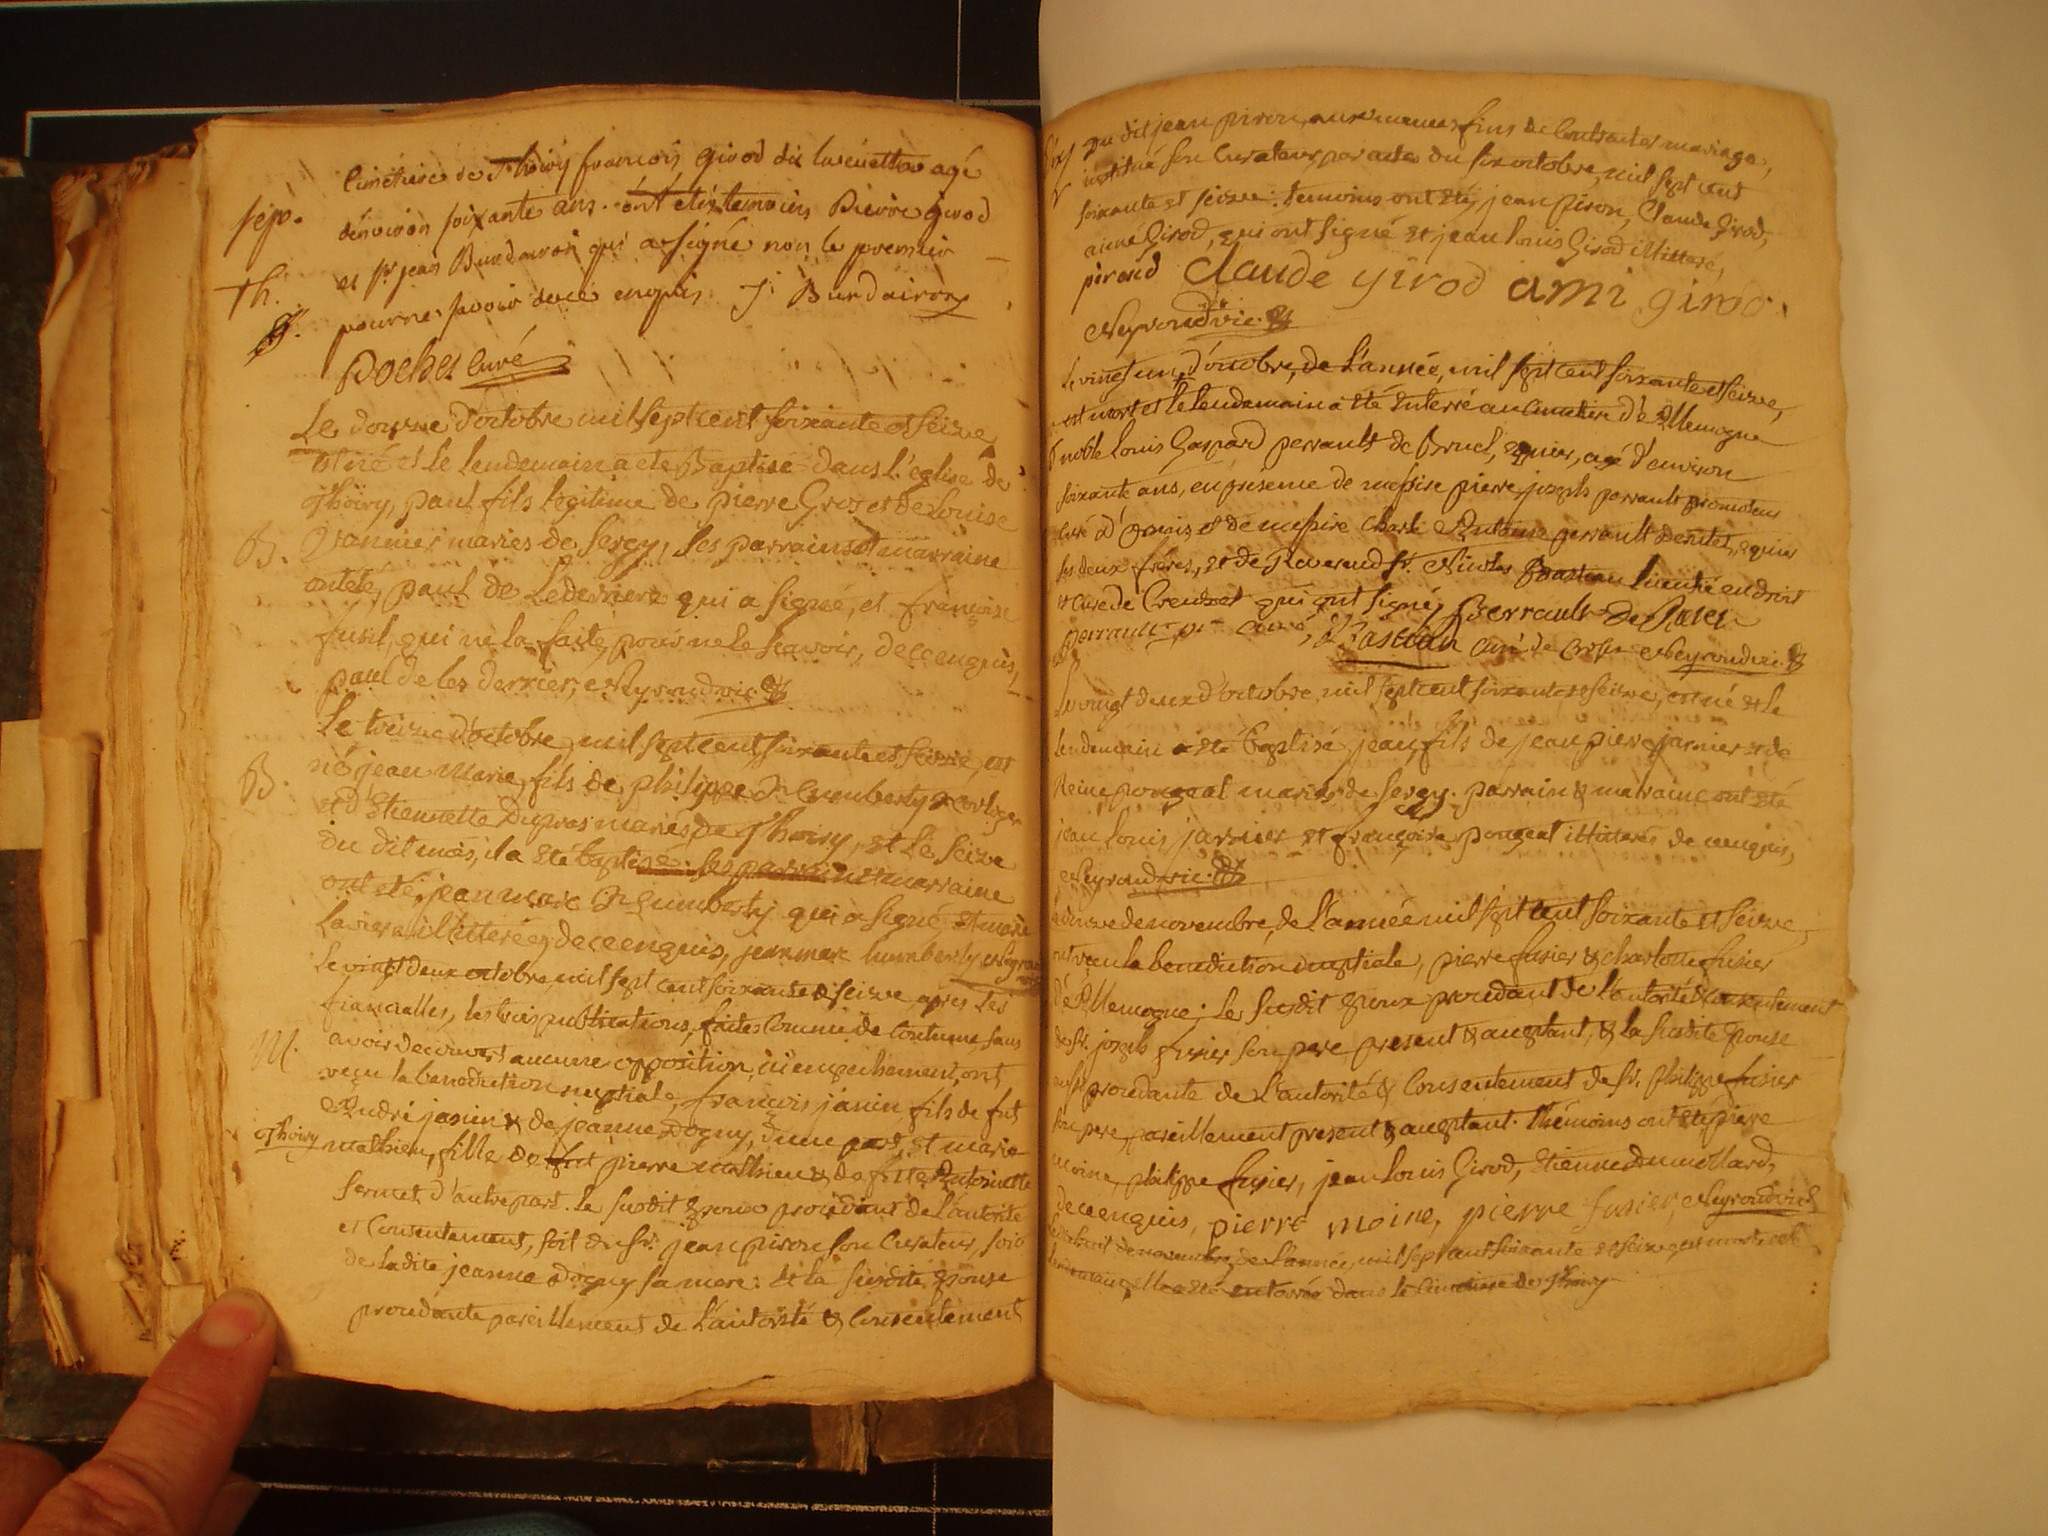 cimétiere de Thoiry françois girod dit agé
sep. d'environ soixante ans. ont étés temoins Pierre girod
et sr. jean Burdairon qui a signé non le premier
Th. pour ne sçavoir de ce enquis. J. Burdairon
g.
Pochet curé
Le douze d'octobre mil sept cent soixante et seize
est né et le lendemain a eté Baptisé dans l'eglise de
Thoiry, paul fils legitime de pierre Groz et de Louise
B. mariés de sergy, ses parrain et marraine
ont eté, paul de Lederrier qui a signé, et françoise
fusil, qui ne la faite, pour ne le scavoir, de ce enquis,
paul de les derrier, Neyroud vic.
Le treize d'octobre mil sept cent soixante et seize, est
B. né jean Marie, fils de philippe humberty horloger
et d'Etiennette Dupras mariés de Thoiry, et le seize
du dit mois, il a eté baptisé. ses parrain et marraine
ont eté, jean marc humberty qui a signé et marie
illitterée de ce enquis, jean marc humberty Neyroud
Le vingt deux octobre mil sept cent soixante & seize apres les
fiancailles, les trois publications, faites comme de coutume, sans
M. avoir decouvert aucune opposition, ni empechement, ont
reçu la benediction nuptiale, françois janin fils de fut
André janin & de jeanne Dogny, d'une part, et marie
Thoiry mathieu, fille de fut pierre mathieu & de fute Antoinette
fermet, d'autre part. le susdit Epoux procédant de l'autorité
et consentement, soit du sr. jean piron son curateur, soit
de ladite jeanne Dogny sa mere: et la susdite Epouse
procedante pareillement de l'autorité & consentement
du dit jean piron, aux memes fins de contracter mariage,
institué son curateur, par acte du six octobre, mil sept cent
soixante et seize. temoins ont eté, jean piron, Claude Girod,
aimé Girod, qui ont signé et jean louis Girod illitteré,
pirond Claude girod ami girod.
Neyroud vic.
Le vingt un d'octobre, de l'année, mil sept cent soixante et seize,
est mort et le lendemain a eté Enterré au cimetiere d'Allemogne
noble Louis Gaspard perrault de Bruel, Equier, agé d'environ
soixante ans, en présence de messire pierre joseph perrault promoteur
curé d' et de messire Charle Antoine perrault Equier
ses deux freres, et de Reverend sr. Nicolas Bastian licentié en droit
et curé de Crozet qui ont signé, Perrault De
perrault pr. curé, Bastian curé de Croset Neyroud vic.
Le vingt deux d'octobre mil sept cent soixante et seize, est né et le
lendemain a eté baptisé jean, fils de jean pierre jarnier et de
Reine pougeat mariés de sergy. parrain & marraine ont eté
jean louis jarnier et françoise pougeat illiterés de ce enquis,
Neyroud vic.
Le onze de novembre, de l'année mil sept cent soixante et seize,
ont reçu la benediction nuptiale, pierre fusier & charlotte fusier
d'Allemogne; le susdit Epoux procedant de l'autorité & consentement
de sr. joseph fusier son pere present & acceptant, & la susdite Epouse
aussi procedante de l'autorité & consentement de sr. philippe fusier
son pere pareillement present & acceptant. Thémoins ont eté pierre
moine, philippe fusier, jean louis Girod, Etienne dumollard,
de ce enquis, pierre moine, pierre fusier, Neyroud vic.
de novembre de l'année, mil sept cent soixante et seize est morte et le
lendemain, elle a eté enterrée dans le cimetiere de Thoiry